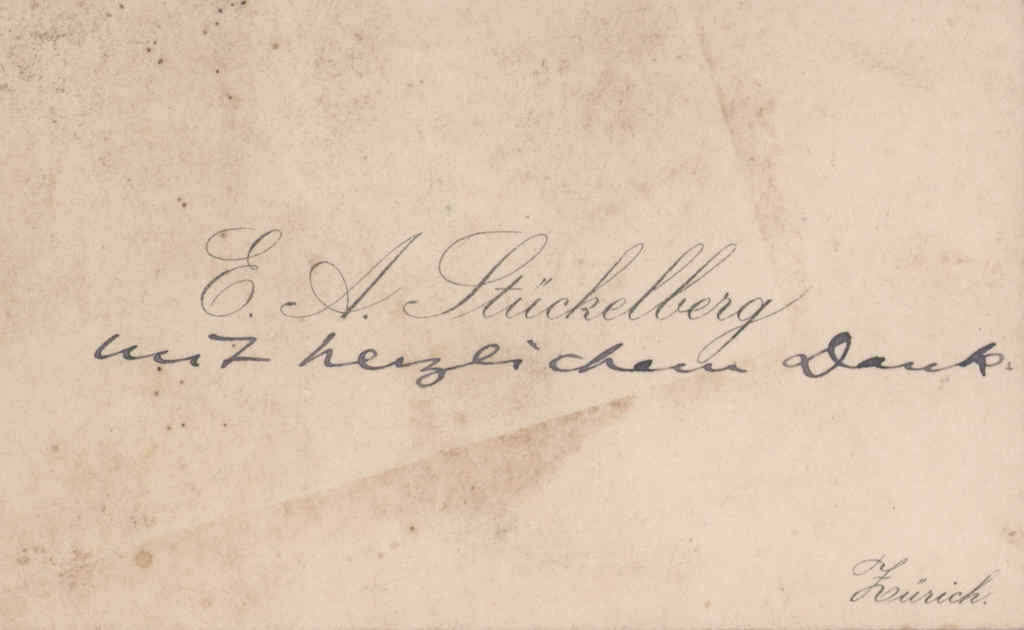 E. A. Stückelberg
mit herzlichem Dank.
Zürich.